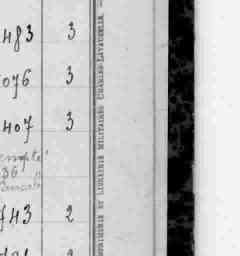 483 3
076 3
407 3
36
743 2
IMPRIMERIE ET LIBRAIRIE MILITAIRES CHARLES-LAVAUZELLE. —